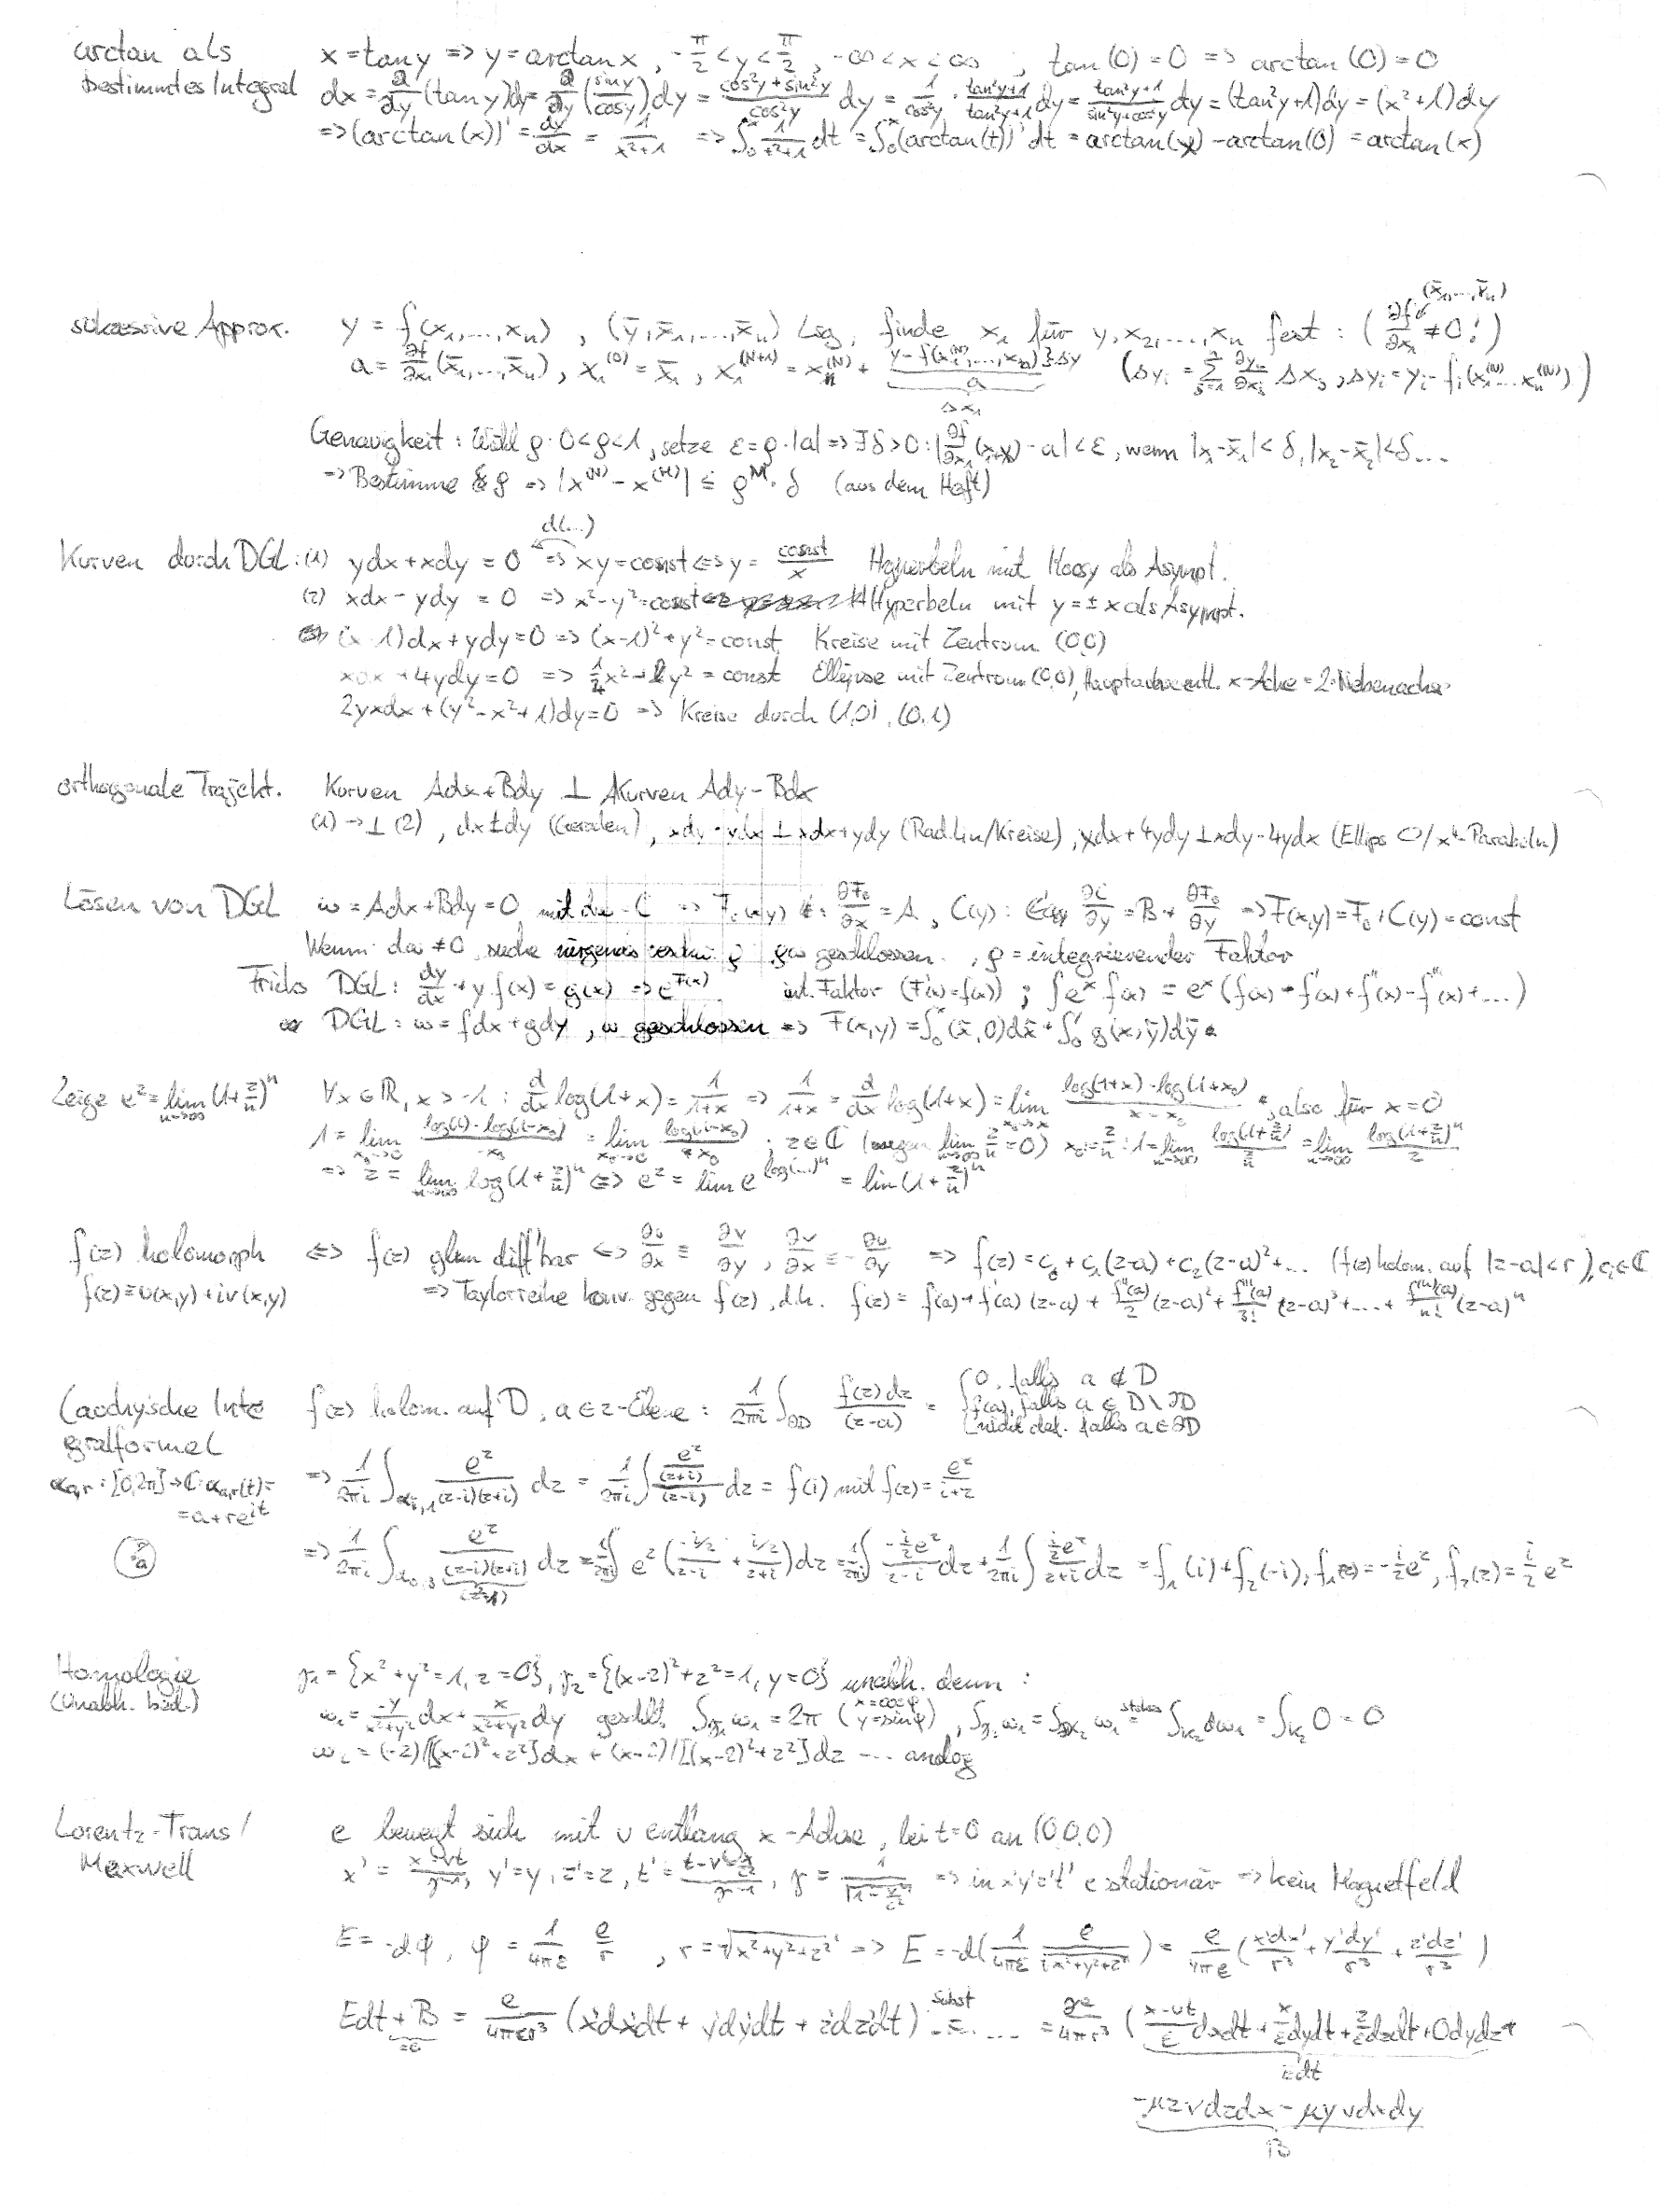 arctan als x = tan y => y = arctan x , -π/2 < y < π/2 , -∞ < x < ∞ ; tan(0) = 0 => arctan(0) = 0
bestimmtes Integral dx = ∂/∂y (tan y)dy = ∂/∂y (sin y/cos y) dy = (cos²y + sin²y)/cos²y dy = 1/cos²y · (tan²y+1)/(tan²y+1) dy = (tan²y+1)/(sin²y+cos²y) dy = (tan²y+1)dy = (x²+1)dy
=> (arctan(x))' = dy/dx = 1/(x²+1) => ∫₀ˣ 1/(t²+1) dt = ∫₀ˣ (arctan(t))' dt = arctan(x) - arctan(0) = arctan(x)
sukzessive Approx. y = f(x₁,...,xₙ) , (ȳ,x̄₁,...,x̄ₙ) Lsg, finde x₁ für y,x₂,...,xₙ fest : (∂f/∂x₁ (x̄₁,...,x̄ₙ) ≠ 0!)
a = ∂f/∂x₁ (x̄₁,...,x̄ₙ) , x₁⁽⁰⁾ = x̄₁ , x₁⁽ᴺ⁺¹⁾ = x₁⁽ᴺ⁾ + (y - f(x₁⁽ᴺ⁾,...,xₙ))}Δy / a
Δx₁
Genauigkeit : Wähl ρ : 0<ρ<1, setze ε = ρ·|a| => ∃δ>0 : |∂f/∂x₁ (x) - a| < ε, wenn |x₁-x̄₁| < δ, |x₂-x̄₂| < δ ...
=> Bestimme ρ => |x⁽ᴺ⁾ - x⁽ᴹ⁾| ≤ ρᴹ · δ (aus dem Heft)
d(...)
Kurven durch DGL : (1) ydx + xdy = 0 => xy = const <=> y = const/x Hyperbeln mit als Asympt.
(2) xdx - ydy = 0 => x² - y² = const Hyperbeln mit y = ± x als Asympt.
(x-1)dx + ydy = 0 => (x-1)² + y² = const Kreise mit Zentrum (0,0)
xdx + 4ydy = 0 => = const Ellipse mit Zentrum (0,0), Hauptachse entl. x-Achse = 2·Nebenachse
2yxdx + (y² - x² + 1)dy = 0 => Kreise durch (1,0), (0,1)
orthogonale Trajekt. Kurven Adx + Bdy ⊥ Kurven Ady - Bdx
(1) -> ⊥ (2) , dx ⊥ dy (Geraden) , xdy - ydx ⊥ xdx + ydy (Rad.Lin/Kreise) , xdx + 4ydy ⊥ xdy - 4ydx (Ellips / x⁴-Parabeln)
Lösen von DGL ω = Adx + Bdy = 0 mit dω = 0 => F₀(x,y) : ∂F₀/∂x = A , C(y) : ∂C/∂y = B + ∂F₀/∂y => F(x,y) = F₀ + C(y) = const
Wenn dω ≠ 0, suche nirgends ρ : ρω geschlossen. , ρ = integrierender Faktor
Tricks DGL : dy/dx + y f(x) = g(x) => e^F(x) int. Faktor (F'(x) = f(x)) ; ∫eˣ f(x) = eˣ (f(x) - f'(x) + f''(x) - f'''(x) + ...)
DGL : ω = fdx + gdy , ω geschlossen => F(x,y) = ∫₀ˣ (x̄,0)dx̄ + ∫₀ʸ g(x,ȳ)dȳ
Zeige e^z = lim n→∞ (1+z/n)ⁿ ∀x ∈ ℝ, x > -1 : d/dx log(1+x) = 1/(1+x) => 1/(1+x) = d/dx log(1+x) = lim x₀→x (log(1+x) - log(1+x₀))/(x - x₀) , also für x = 0
1 = lim x₀→0 (log(1) - log(1+x₀))/(-x₀) = lim x₀→0 log(1+x₀)/x₀ ; z ∈ ℂ (wegen lim n→∞ z/n = 0) x₀ = z/n : 1 = lim n→∞ log(1+z/n)/(z/n) = lim n→∞ log(1+z/n)ⁿ/z
=> z = lim n→∞ log(1+z/n)ⁿ <=> e^z = lim e^log(...)ⁿ = lim(1+z/n)ⁿ
f(z) holomorph <=> f(z) diff'bar <=> ∂u/∂x = ∂v/∂y , ∂v/∂x = -∂u/∂y => f(z) = c₀ + c₁(z-a) + c₂(z-a)² + ... (f(z) holom. auf |z-a|<r), cᵢ ∈ ℂ
f(z) = u(x,y) + iv(x,y) => Taylorreihe konv. gegen f(z), d.h. f(z) = f(a) + f'(a)(z-a) + f''(a)/2 (z-a)² + f'''(a)/3! (z-a)³ + ... + f⁽ⁿ⁾(a)/n! (z-a)ⁿ
Cauchy'sche Inte f(z) holom. auf D, a ∈ z-Ebene : 1/2πi ∫∂D f(z)dz/(z-a) = { 0, falls a ∉ D
f(a), falls a ∈ D\∂D
nicht def. falls a ∈ ∂D
gralformel
α a,r : [0,2π] → ℂ : α a,r(t) = => 1/2πi ∫α i,1 e^z/((z-i)(z+i)) dz = 1/2πi ∫ (e^z/(z+i))/(z-i) dz = f(i) mit f(z) = e^z/(i+z)
= a + re^it
a => 1/2πi ∫α 0,3 e^z/((z-i)(z+i)) dz = 1/2πi ∫ e^z ((-i/2)/(z-i) + (i/2)/(z+i)) dz = 1/2πi ∫ (-i/2 e^z)/(z-i) dz + 1/2πi ∫ (i/2 e^z)/(z+i) dz = f₁(i) + f₂(-i), f₁(z) = -i/2 e^z, f₂(z) = i/2 e^z
Homologie γ₁ = {x² + y² = 1, z = 0}, γ₂ = {(x-2)² + z² = 1, y = 0} unabh. denn :
(Unabh. bed.) ω₁ = -y/(x²+y²) dx + x/(x²+y²) dy geschl., ∫γ₁ ω₁ = 2π (x = cos φ y = sin φ) , ∫γ₂ ω₁ = ∫∂K₂ ω₁ = stokes ∫K₂ dω₁ = ∫K₂ 0 = 0
ω₂ = (-z)/[(x-2)² + z²]dx + (x-2)/[(x-2)² + z²]dz ... analog
Lorentz-Trans/ e bewegt sich mit v entlang x-Achse, bei t=0 an (0,0,0)
Maxwell x' = (x-vt)/γ⁻¹, y' = y, z' = z, , γ = 1/√(1-v²/c²) => in x'y'z't' e stationär => kein Magnetfeld
E = -dφ, φ = 1/4πε e/r , r = √(x²+y²+z²) => E = -d(1/4πε e/√(x²+y²+z²)) = e/4πε (x'dx'/r³ + y'dy'/r³ + z'dz'/r³)
Edt + B = e/4πεr³ (x'dx'dt + y'dy'dt + z'dz'dt) subst = ... = γe/4πr³ ((x-vt)/ε dxdt + dydt + z/ε dzdt + 0dydz +
=0
Edt
-μzvdzdx - μyvdxdy
B